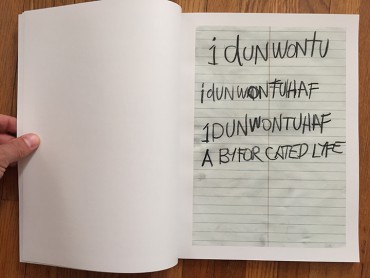 i dUNWONTU
idUNWONTUHAF
iDUNWONTUHAF
A BYFORCATED LYFE